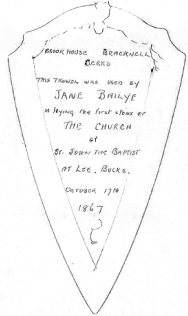 BROOKHOUSE BRACKNELL
BERKS
THIS TROWEL WAS USED BY
JANE BAILYE
in laying the first stone of
THE CHURCH
of
St. JOHN THE BAPTIST
AT LEE, BUCKS,
OCTOBER 17th
1867